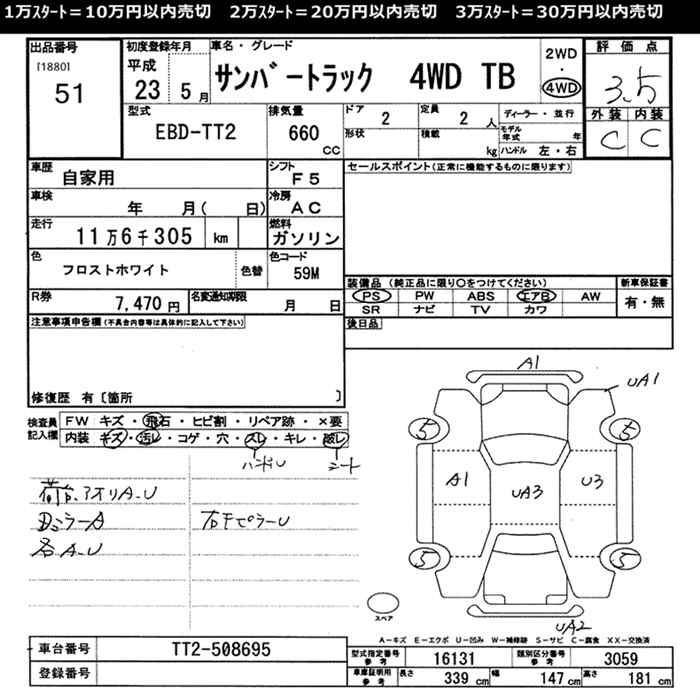 1万スタート＝10万円以内売切　2万スタート＝20万円以内売切　3万スタート＝30万円以内売切
出品番号 初度登録年月 車名・グレード 評価点
[1880] 51 平成 23 5月 サンバートラック 4WD TB 2WD ・ 4WD 3.5
型式 EBD-TT2 排気量 660 CC ドア 2 定員 2 人 ディーラー・並行 外装 内装
形状 積載 kg モデル年式 年 C C
ハンドル 左・右
車歴 自家用 シフト F5 セールスポイント(正常に機能するものに限ります)
車検 年 月( 日) 冷房 AC
走行 11万6千305 km 燃料 ガソリン
色 フロストホワイト 色替 色コード 59M
装備品 (純正品に限り○をつけてください) 新車保証書
PS PW ABS エアB AW 有・無
SR ナビ TV カワ
R券 7,470円 名変通知期限 月 日
注意事項申告欄(不具合内容等は具体的に記入して下さい) 後日品
修復歴 有〔箇所 〕
検査員記入欄 FW キズ・飛石・ヒビ割・リペア跡・×要
内装 キズ・汚レ・コゲ・穴・スレ・キレ・破レ
ハンドル シート
荷台、アオリA-U
DミラーA 右千ピラーU
各A-U
A1
UA1
5 5
A1 UA3 U3
5 5
UA2
スペア
A－キズ E－エクボ U－凹み W－補修跡 S－サビ C－腐食 XX－交換済
車台番号 TT2-508695 型式指定番号 参考 16131 類別区分番号 参考 3059
登録番号 車庫証明用 参考 長さ 339 cm 幅 147 cm 高さ 181 cm